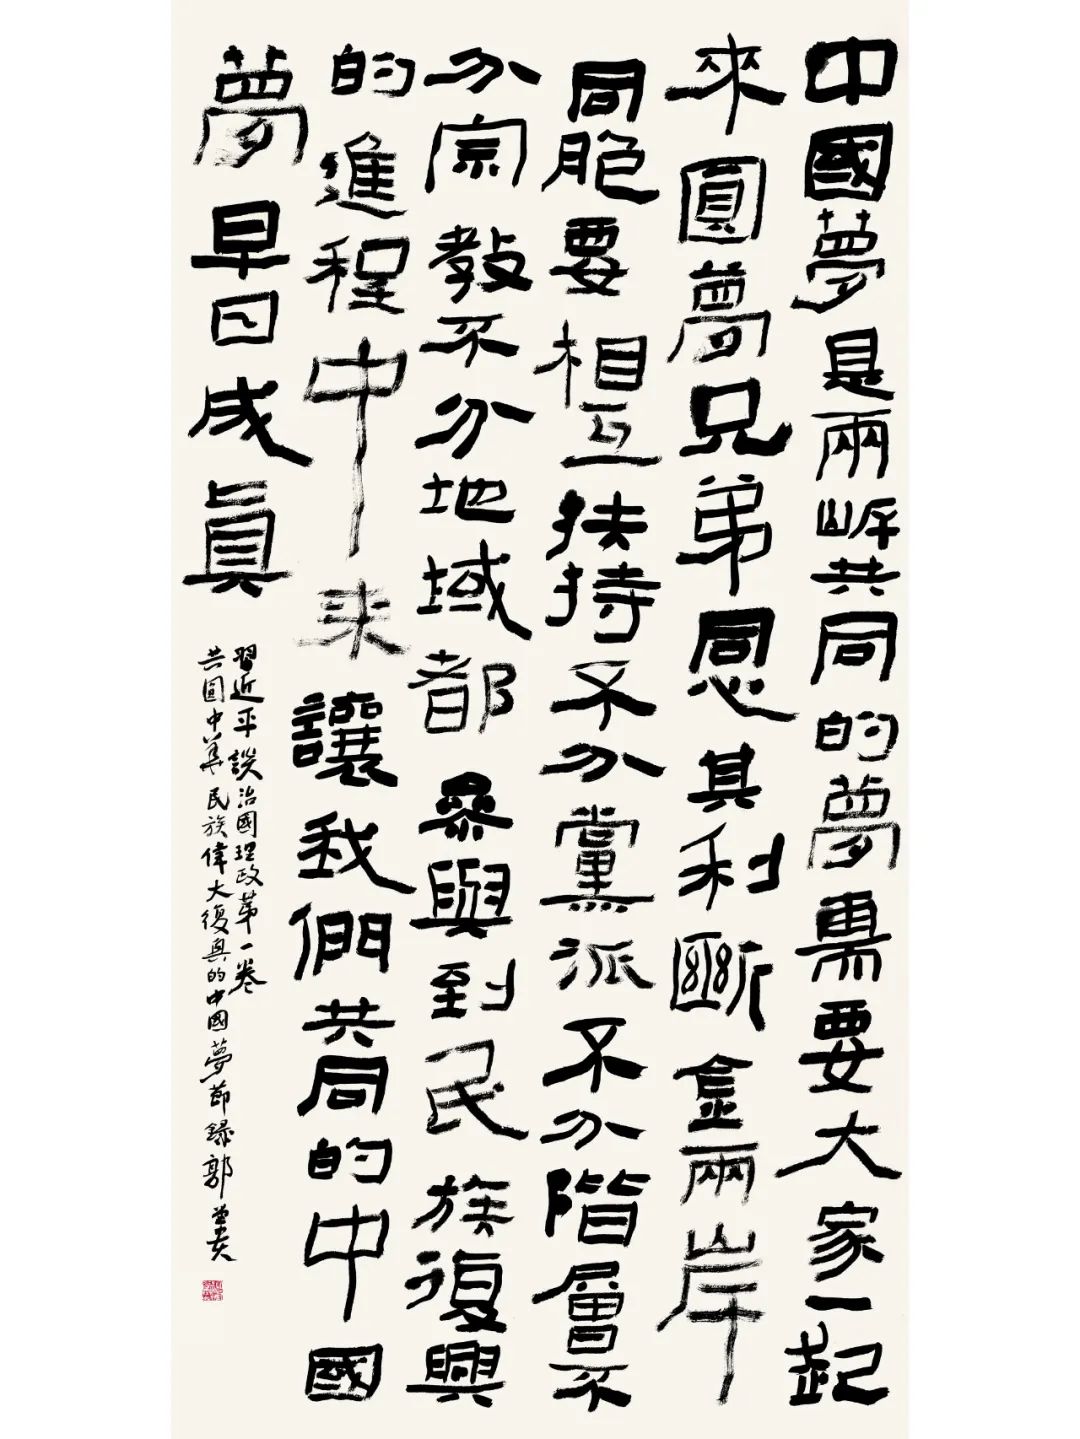 中國夢是兩岸共同的夢需要大家一起
來圓夢兄弟同心其利斷金兩岸
同胞要相互扶持不分黨派不分階層不
分宗教不分地域都參與到民族復興
的進程中來讓我們共同的中國
夢早日成真
習近平談治國理政第一卷
共圓中華民族偉大復興的中國夢節録郭